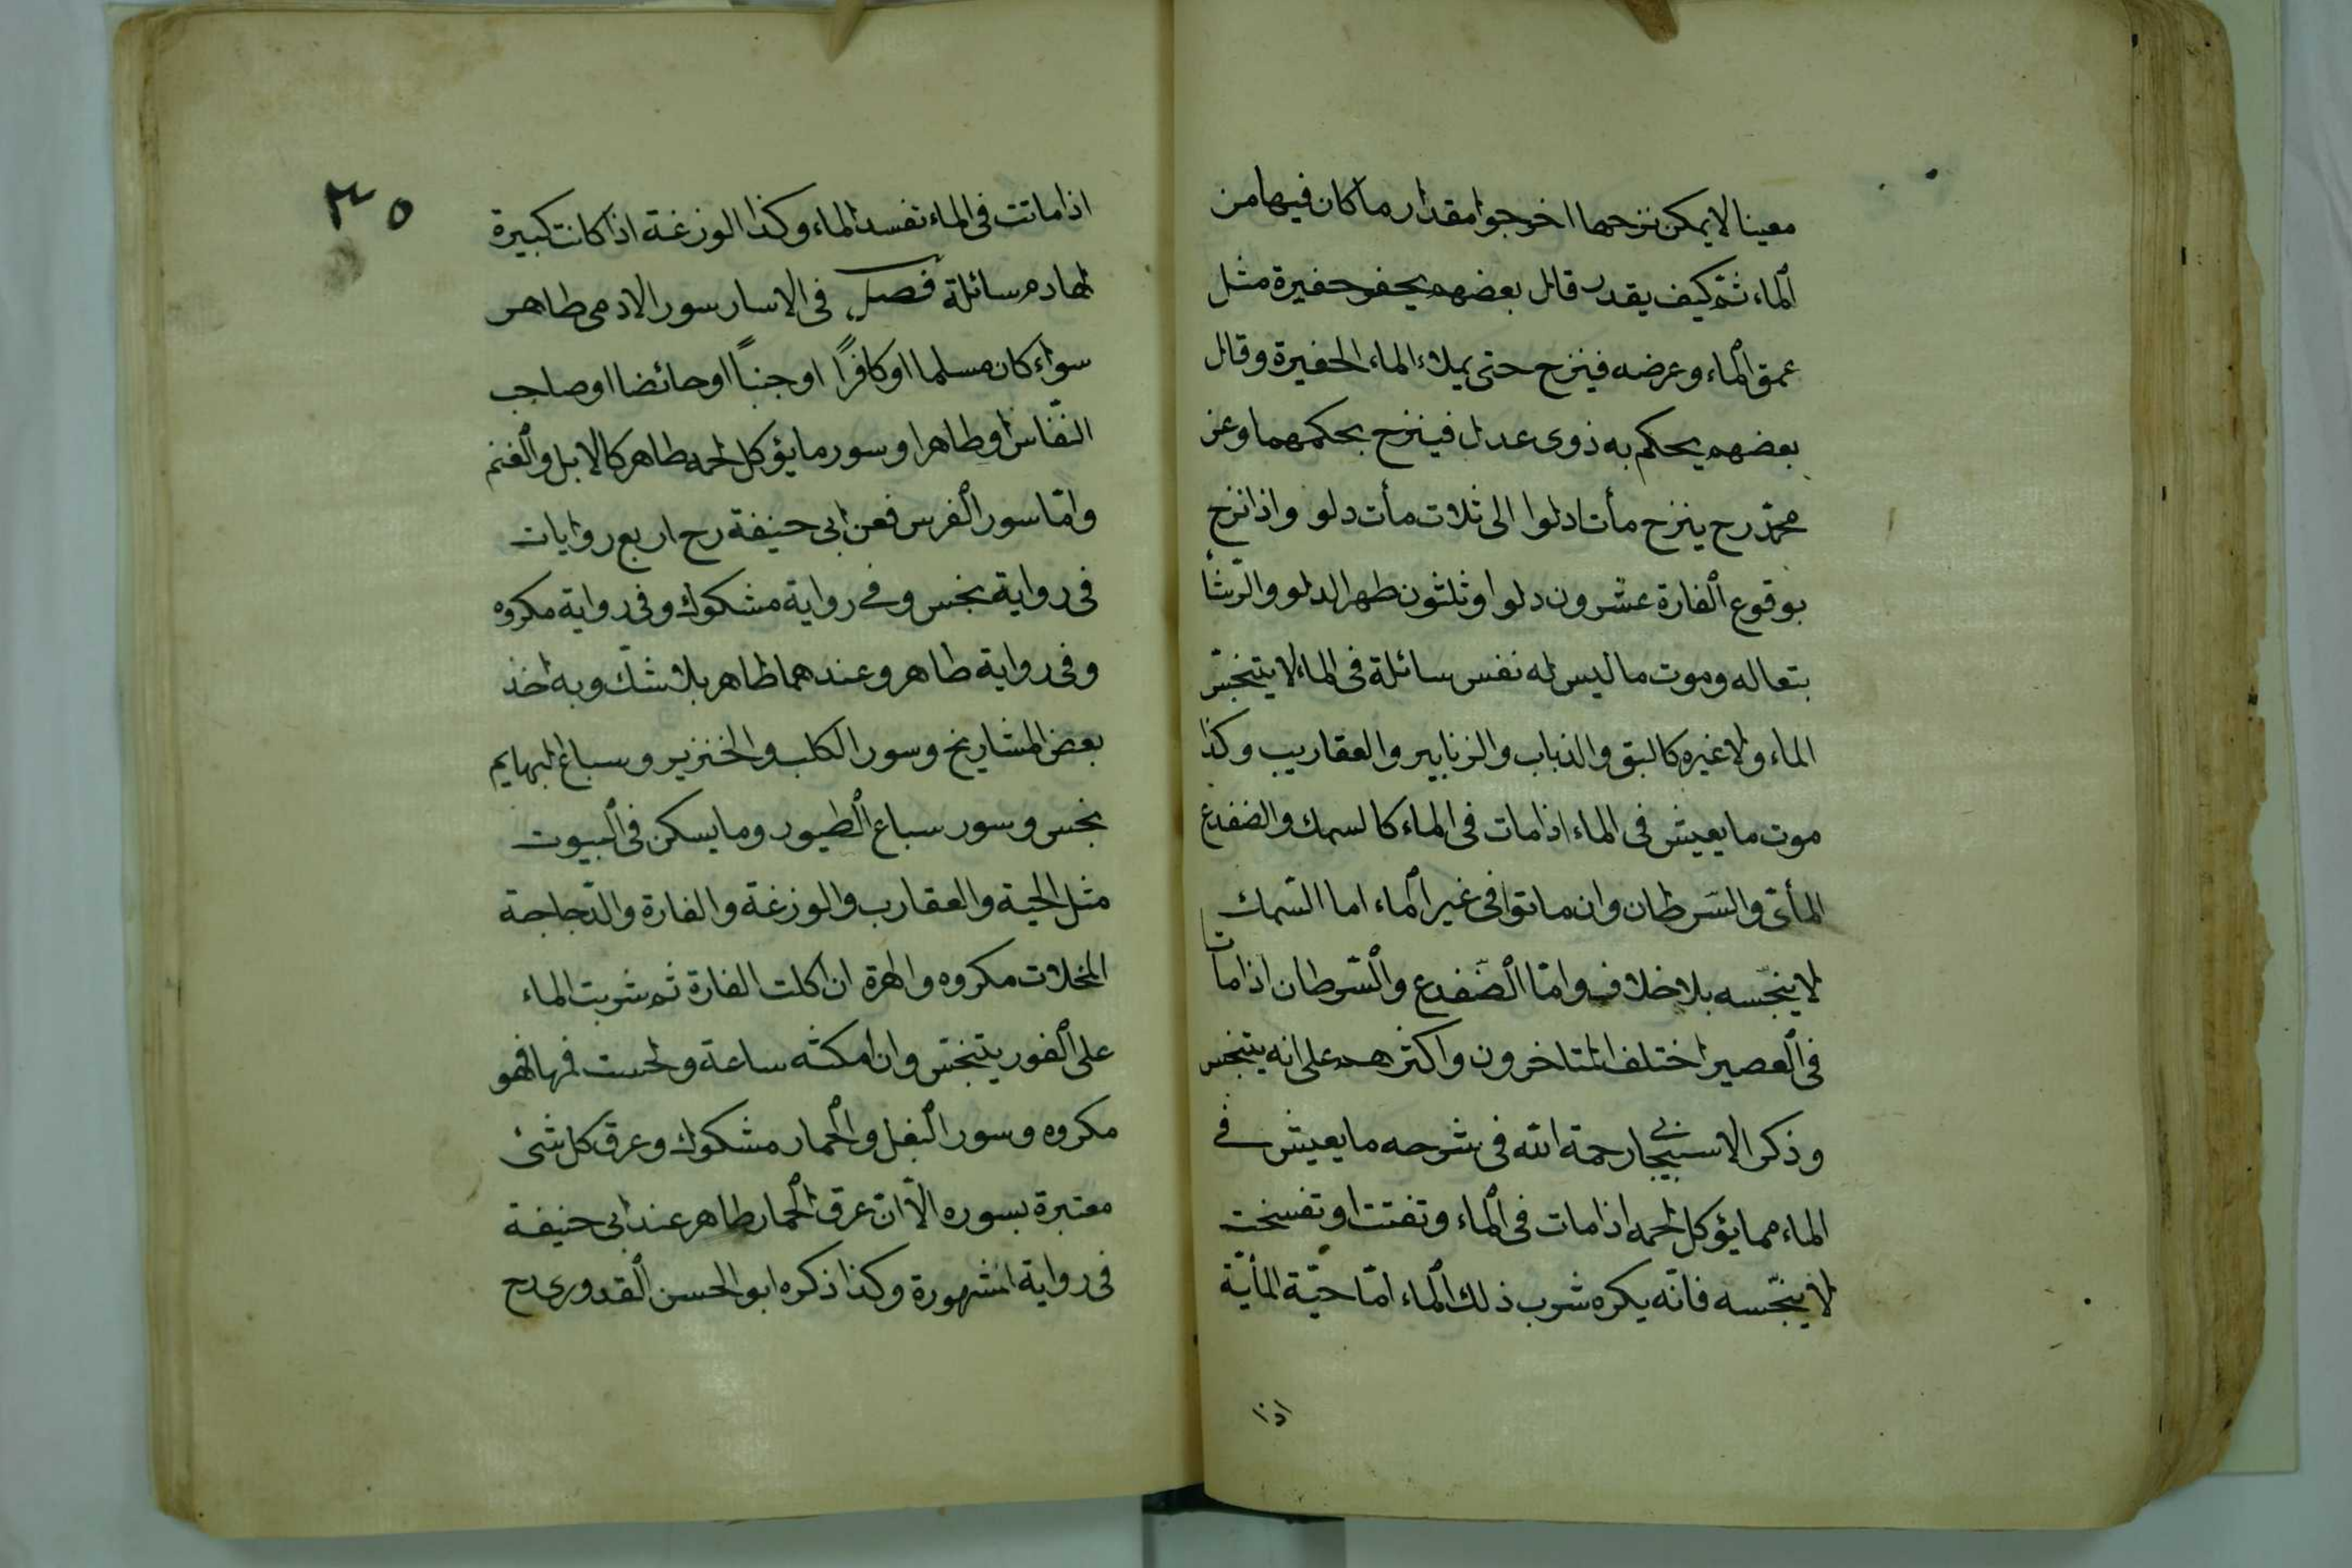 معينا لا يمكن نزحها اخرجوا مقدار ما كان فيها من
الماء ثم كيف يقدر قال بعضهم يحفر حفيرة مثل
عمق الماء وعرضه فينزح حتى يملاء الماء الحفيرة وقال
بعضهم يحكم به ذوى عدل فينزح بحكمهما وعن
محمد رح ينزح مأتا دلوا الى ثلاث مأت دلو واذا نزح
بوقوع الفارة عشرون دلوا وثلثون طهر الدلو والرشأ
بتعاله وموت ما ليس له نفس سائلة فى الماء لا يتنجّس
الماء ولا غيره كالبق والذباب والزنابير والعقاريب وكذا
موت ما يعيش فى الماء اذا مات فى الماء كالسمك والضفدع
المأئى والسّرطان وان ماتوا فى غير الماء اما السّمك
لا ينجّسه بلا خلاف وامّا الضّفدع والسّرطان اذا ماتا
فى العصير اختلف المتاخرون واكثرهم على انه يتنجس
وذكر الاسبيجابى رحمة الله فى شرحه ما يعيش فى
الماء مما يؤكل لحمه اذا مات فى الماء وتفتت او تفسخت
لا ينجّسه فانّه يكره شرب ذلك الماء امّا حيّة المأيّة
اذا
٣٥
اذا ماتت فى الماء تفسد الماء وكذا الوزغة اذا كانت كبيرة
لها دم سائلة فصل فى الاسار سور الادمى طاهر
سواء كان مسلما او كافرًا او جنبًا او حائضا او صاحب
النفّاس او طاهرا وسور ما يؤكل لحمه طاهر كالابل والغنم
وامّا سور الفرس فعن ابى حنيفة رح اربع روايات
فى رواية نجس وفى رواية مشكوك وفى رواية مكروه
وفى رواية طاهر وعندهما طاهر بلا شكّ وبه اخذ
بعض المشاريخ وسور الكلب والخنزير وسباع البهايم
نجس وسور سباع الطيور وما يسكن فى البيوت
مثل الحية والعقارب والوزغة والفارة والدّجاجة
المخلات مكروه والهرة ان اكلت الفارة ثم شربت الماء
على الفور يتنجّس وان امكثه ساعة ولحست فمها فهو
مكروه وسور البغل والحمار مشكوك وعرق كل شئ
معتبرة بسوره الاّ انّ عرق الحمار طاهر عند ابى حنيفة
فى رواية المشهورة وكذا ذكره ابو الحسن القدورى رح